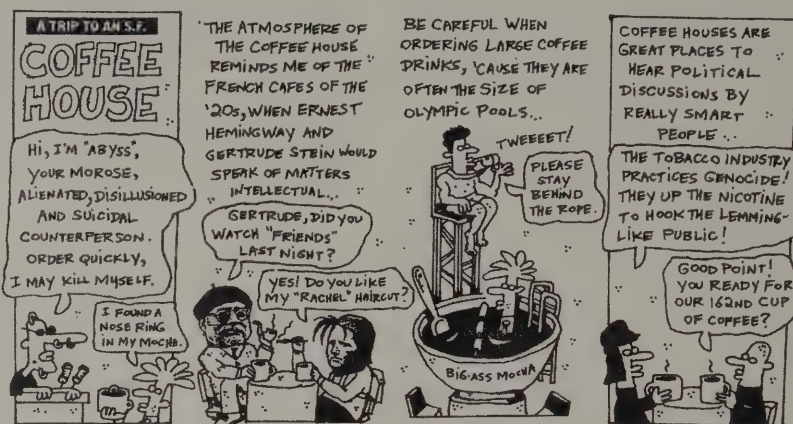 A TRIP TO AN S.F.
COFFEE
HOUSE
HI, I'M "ABYSS",
YOUR MOROSE,
ALIENATED, DISILLUSIONED
AND SUICIDAL
COUNTERPERSON.
ORDER QUICKLY,
I MAY KILL MYSELF.
I FOUND A
NOSE RING
IN MY MOCHA.
THE ATMOSPHERE OF
THE COFFEE HOUSE
REMINDS ME OF THE
FRENCH CAFES OF THE
'20s, WHEN ERNEST
HEMINGWAY AND
GERTRUDE STEIN WOULD
SPEAK OF MATTERS
INTELLECTUAL...
GERTRUDE, DID YOU
WATCH "FRIENDS"
LAST NIGHT?
YES! DO YOU LIKE
MY "RACHEL" HAIRCUT?
BE CAREFUL WHEN
ORDERING LARGE COFFEE
DRINKS, 'CAUSE THEY ARE
OFTEN THE SIZE OF
OLYMPIC POOLS...
TWEEEET!
PLEASE
STAY
BEHIND
THE ROPE.
BIG-ASS MOCHA
COFFEE HOUSES ARE
GREAT PLACES TO
HEAR POLITICAL
DISCUSSIONS BY
REALLY SMART
PEOPLE...
THE TOBACCO INDUSTRY
PRACTICES GENOCIDE!
THEY UP THE NICOTINE
TO HOOK THE LEMMING-
LIKE PUBLIC!
GOOD POINT!
YOU READY FOR
OUR 162ND CUP
OF COFFEE?